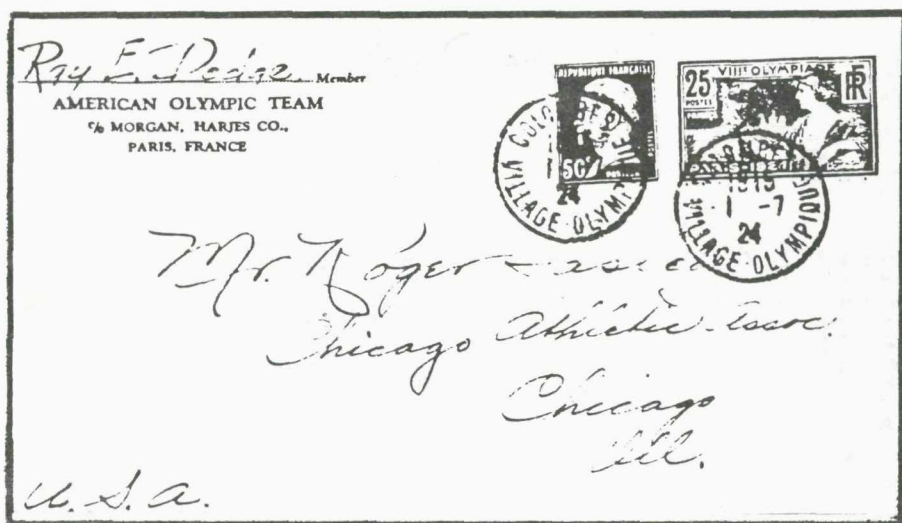 Ray E. Dodge Member
AMERICAN OLYMPIC TEAM
c/o MORGAN, HARJES CO.,
PARIS, FRANCE
REPUBLIQUE FRANÇAISE
50c POSTES
VIIIe OLYMPIADE
25 RF
POSTES
COLOMBES
24
VILLAGE OLYMPIQUE
1515
1 -7
24
VILLAGE OLYMPIQUE
Mr. Roger
Chicago Athletic Assoc.
Chicago
Ill.
U. S. A.